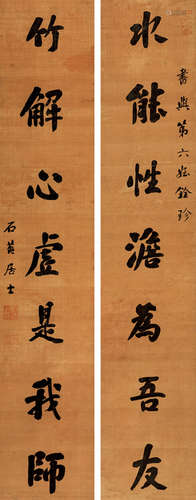 書與第六姪銓珍
水能性澹為吾友
竹解心虛是我師
石菴居士